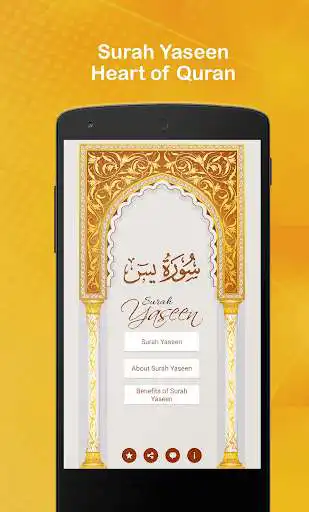 Surah Yaseen
Heart of Quran
سُورَةُ يٰسٓ
Surah
Yaseen
Surah Yaseen
About Surah Yaseen
Benefits of Surah
Yaseen